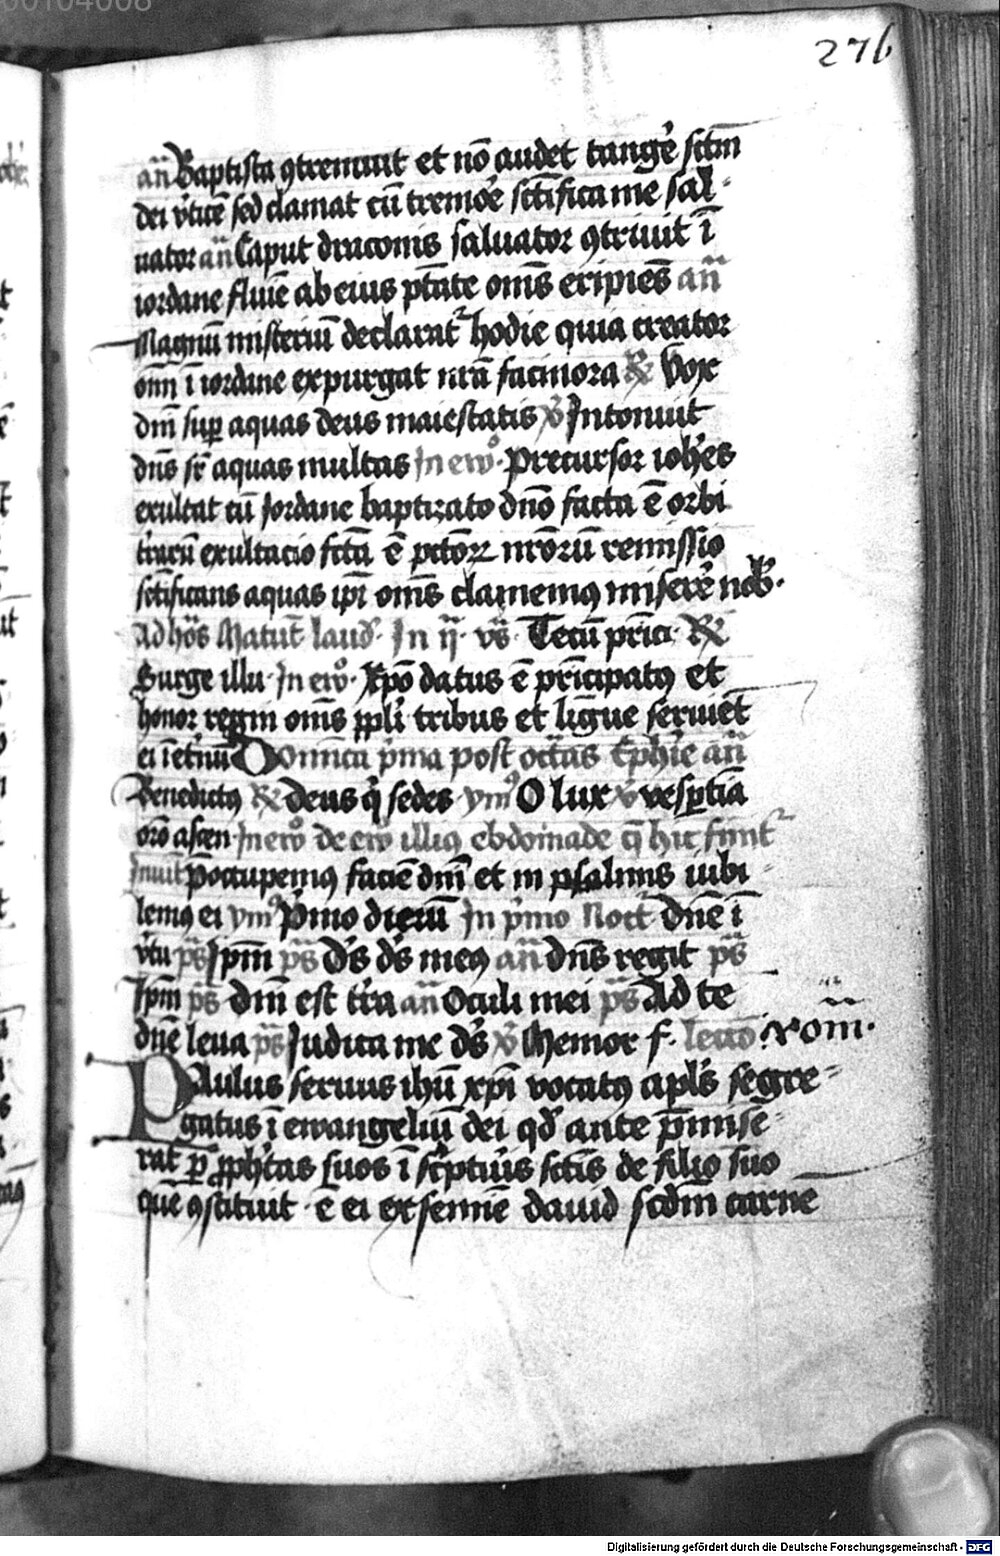 276
an̄ Baptista ꝯtremuit et nō audet tangē sc̄tm
dei v̓ticē sed clamat cū tremoē sc̄tifica me sal-
uator an̄ Caput draconis saluator ꝯtriuit ī
iordane fluuiē ab eius ptāte om̄s eripiēs an̄
Magnū misteriū declarat᷑ hodie quia creator
om̄ ī iordane expurgat nr̄a facinora ℟ Vox
dn̄i suꝑ aquas deus maiestatis ℣ Intonuit
dn̄s sr̄ aquas multas In ew̄o. Precursor ioh̄es
exultat cū Jordane baptizato dn̄o facta ē orbis
t̓rarū exultacio fc̄ta ē pctōꝝ nr̄orū remissio
sc̄tificans aquas ip̄i om̄s clamemꝯ miserē nob̄.
Ad ho͞s Matut̄ laud̄. In ij. vs̄. Tecū prīci. ℟
Surge illu. In ew̄o. Xp̄o datus ē prīcipatꝯ et
honor regm̄ om̄s ppl̄i tribus et līgue seruiēt
ei īet̓nū Domīca p̓ma post octāas Eph̄ie an̄
Benedictꝯ ℟ Deus q̓ sedes ymꝯ O lux ℣ vesp̄tīa
oro͞ ascen. In ew̄o de ew̄o illiꝯ ebdomade q̄ hic fiunt᷑
Inuit̄ Pocupemꝯ faciē dn̄i et in psalmis iubi-
lemꝯ ei ymꝯ P̓mo dierū In p̓mo Noct̄ Dn̄e ī
v̓tu ps̄ Ip̄m ps̄ Ds̄ ds̄ meꝯ an̄ Dn̄s regit ps̄
Ip̄m ps̄ Dn̄i est t̓ra an̄ Oculi mei ps̄ Ad te
dn̄e leua ps̄ Judica me ds̄ ℣ Memor f. lectō. Rom̄.
Paulus seruus ihū xp̄i vocatꝯ apl̄s segre-
gatus ī ewangeliū dei qd̄ ante p̄mise-
rat ꝑ ꝓph̄etas suos ī sc̓ptur̓is sc̄tis de filio suo
quē ꝯstituit. ē ei ex semīe dauid scd̄m carnē
Digitalisierung gefördert durch die Deutsche Forschungsgemeinschaft - DFG